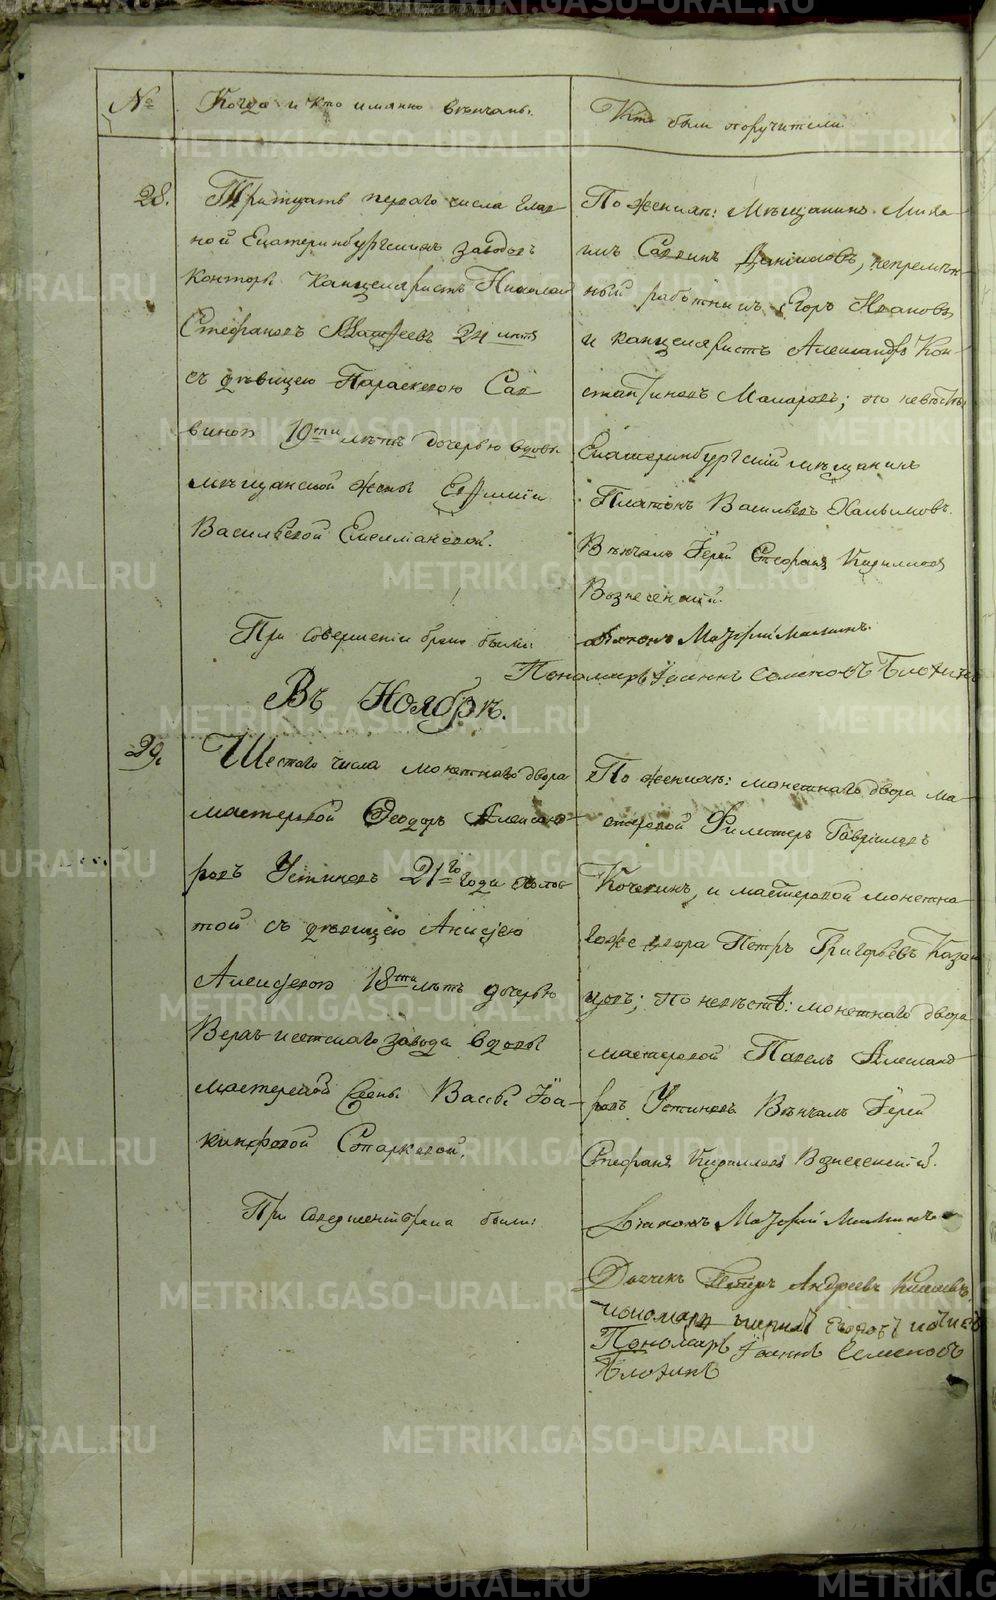 №
Когда и кто имянно вѣнчаны.
Кто были поручители
28.
Тритцать перваго числа Глав
ной Екатеринбургскихъ заводовъ
конторы канцеляристъ Николай
Стефановъ 24 лѣтъ
съ дѣвицею Параскевою Сав
виною 19ти лѣтъ дочерью вдовы
мѣщанской жены Евфиміи
Васильевой Емельяновой.
При совершеніи брака были:
По женихѣ: мѣщанинъ Миха
илъ Саввинъ Даниловъ, непремѣн
ный работникъ Егоръ Ивановъ
и канцеляристъ Александръ Кон-
стантиновъ Макаровъ; по невѣстѣ:
Екатеринбургскій мѣщанинъ
Платонъ Васильевъ
Вѣнчалъ Іерей Стефанъ Кирилловъ
Вознесенскій.
Діаконъ
Пономарь Іоаннъ Семеновъ Блохинъ
Въ Ноябрѣ.
29.
Шестаго числа монетнаго двора
мастеровой Феодоръ Александ-
ровъ Устиновъ 21го года холос
той съ дѣвицею Анисьею
Алексѣевою 18ти лѣтъ дочерью
Верхъ-исетскаго завода вдовы
мастерской жены Вассы Іоа-
кинфовой Старковой.
При совершеніи брака были:
По женихѣ: монетнаго двора ма-
стеровой Филиппъ Гавриловъ
Кочкинъ, и мастеровой монетна-
гоже двора Петръ Григорьевъ Казан
цовъ; по невѣстѣ: монетнаго двора
мастеровой Павелъ Александ-
ровъ Устиновъ Вѣнчалъ Іерей
Стефанъ Кирилловъ Вознесенскій.
Діаконъ
Дьячекъ Петръ Андреевъ
пономарь
Пономарь Іоаннъ Семеновъ
Блохинъ
METRIKI.GASO-URAL.RU